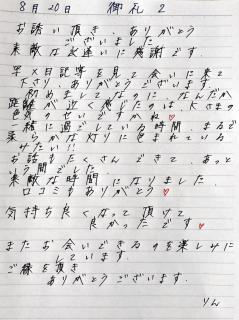 8月20日 御礼 2
お誘い頂き、ありがとう
ございました。
素敵な出逢いに感謝です。
写メ日記等を見て会いに来て
下さり、ありがとうございます。
初めましてなのに、なんだか
距離が近く感じたのは、Kさまの
色気のせいですかね♡
一緒に過ごしている時間、まるで
柔らかな灯りに包まれている
みたい!!
お話もたくさんできて、あっと
いう間でした。
素敵な時間になりました。
口コミもありがとう♡
気持ち良くなって頂けて
良かったです♡
またお会いできるのを楽しみに
しています。
ご縁を頂き
ありがとうございます。
りん